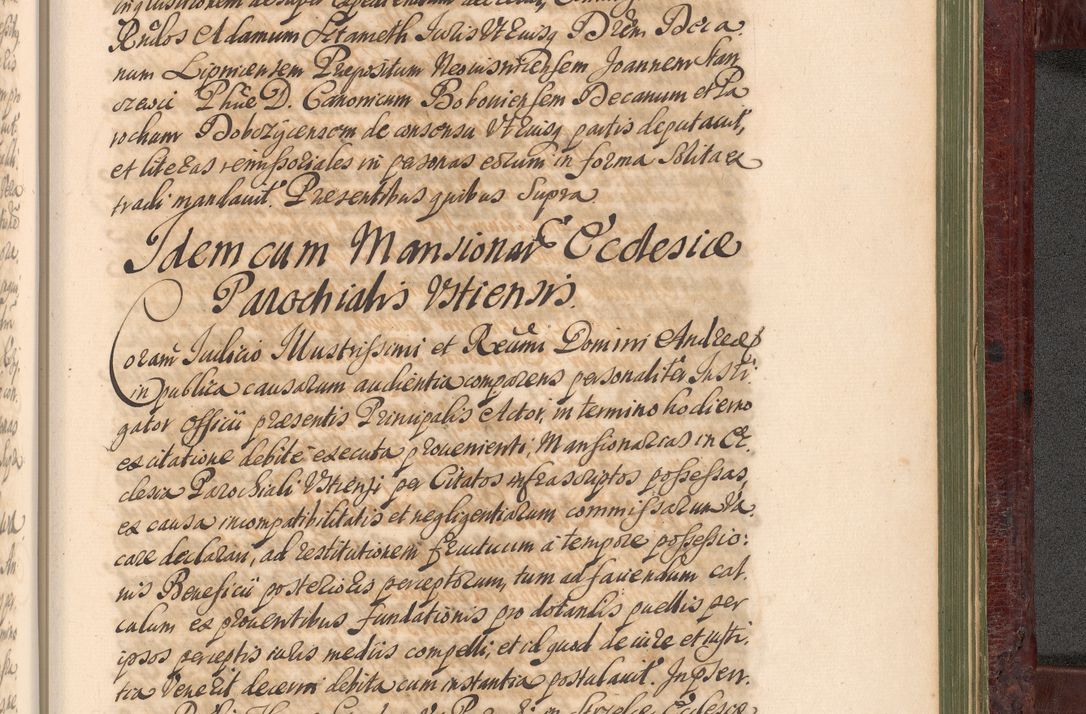 Rndos Adamum Sztameth Iuris Utriusq Drem Bera
num Lipnicensem Præpositum Neovisnicensem Joannem Kan
Phiæ D. Canonicum Boboviensem Decanum et Pa
rochum Dobczycensem de consensu Utriusq partis deputavit,
et literas remissoriales in personas eorum in forma solita ex
tradi mandavit. Præsentibus quibus Supra
Idem cum Mansionar Ecclesiæ
Parochialis Ustiensis.
Coram Judicio Illustrissimi et Reūmi Domini Andreæ
in publica causarum audientia comparens personaliter Insti
gator Officii præsentis Principalis Actor, in termino hodierno
ex citatione debite executa proveniente, Mansionarias in Ec
clesia Parochiali Ustiensi per Citatos infrascriptos possessas,
ex causa incompatibilitatis et negligentiarum commissarum Va
care declarari, ad restitutionem fructuum a tempore possessio:
nis Beneficii posterioris perceptorum, tum ad faciendum cal
culum ex proventibus fundationis pro dotandis puellis per
ipsos perceptis iuris mediis compelli, et id quod de iure et iusti
tia Venerit decerni debita cum instantia postulavit. In pser.